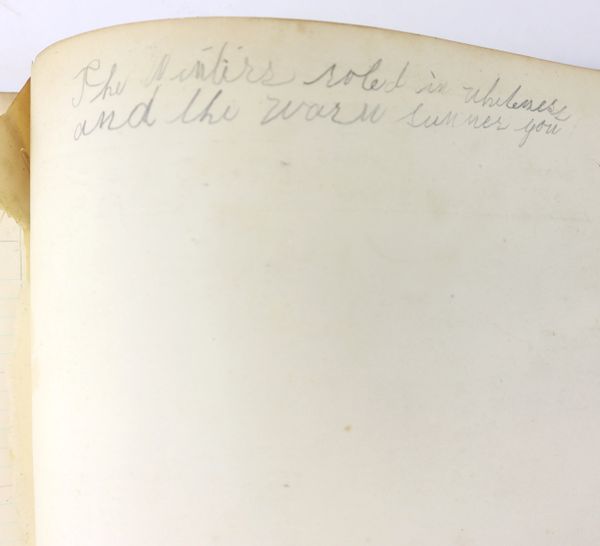 The Winters robed in whiteness
and the warm summer you